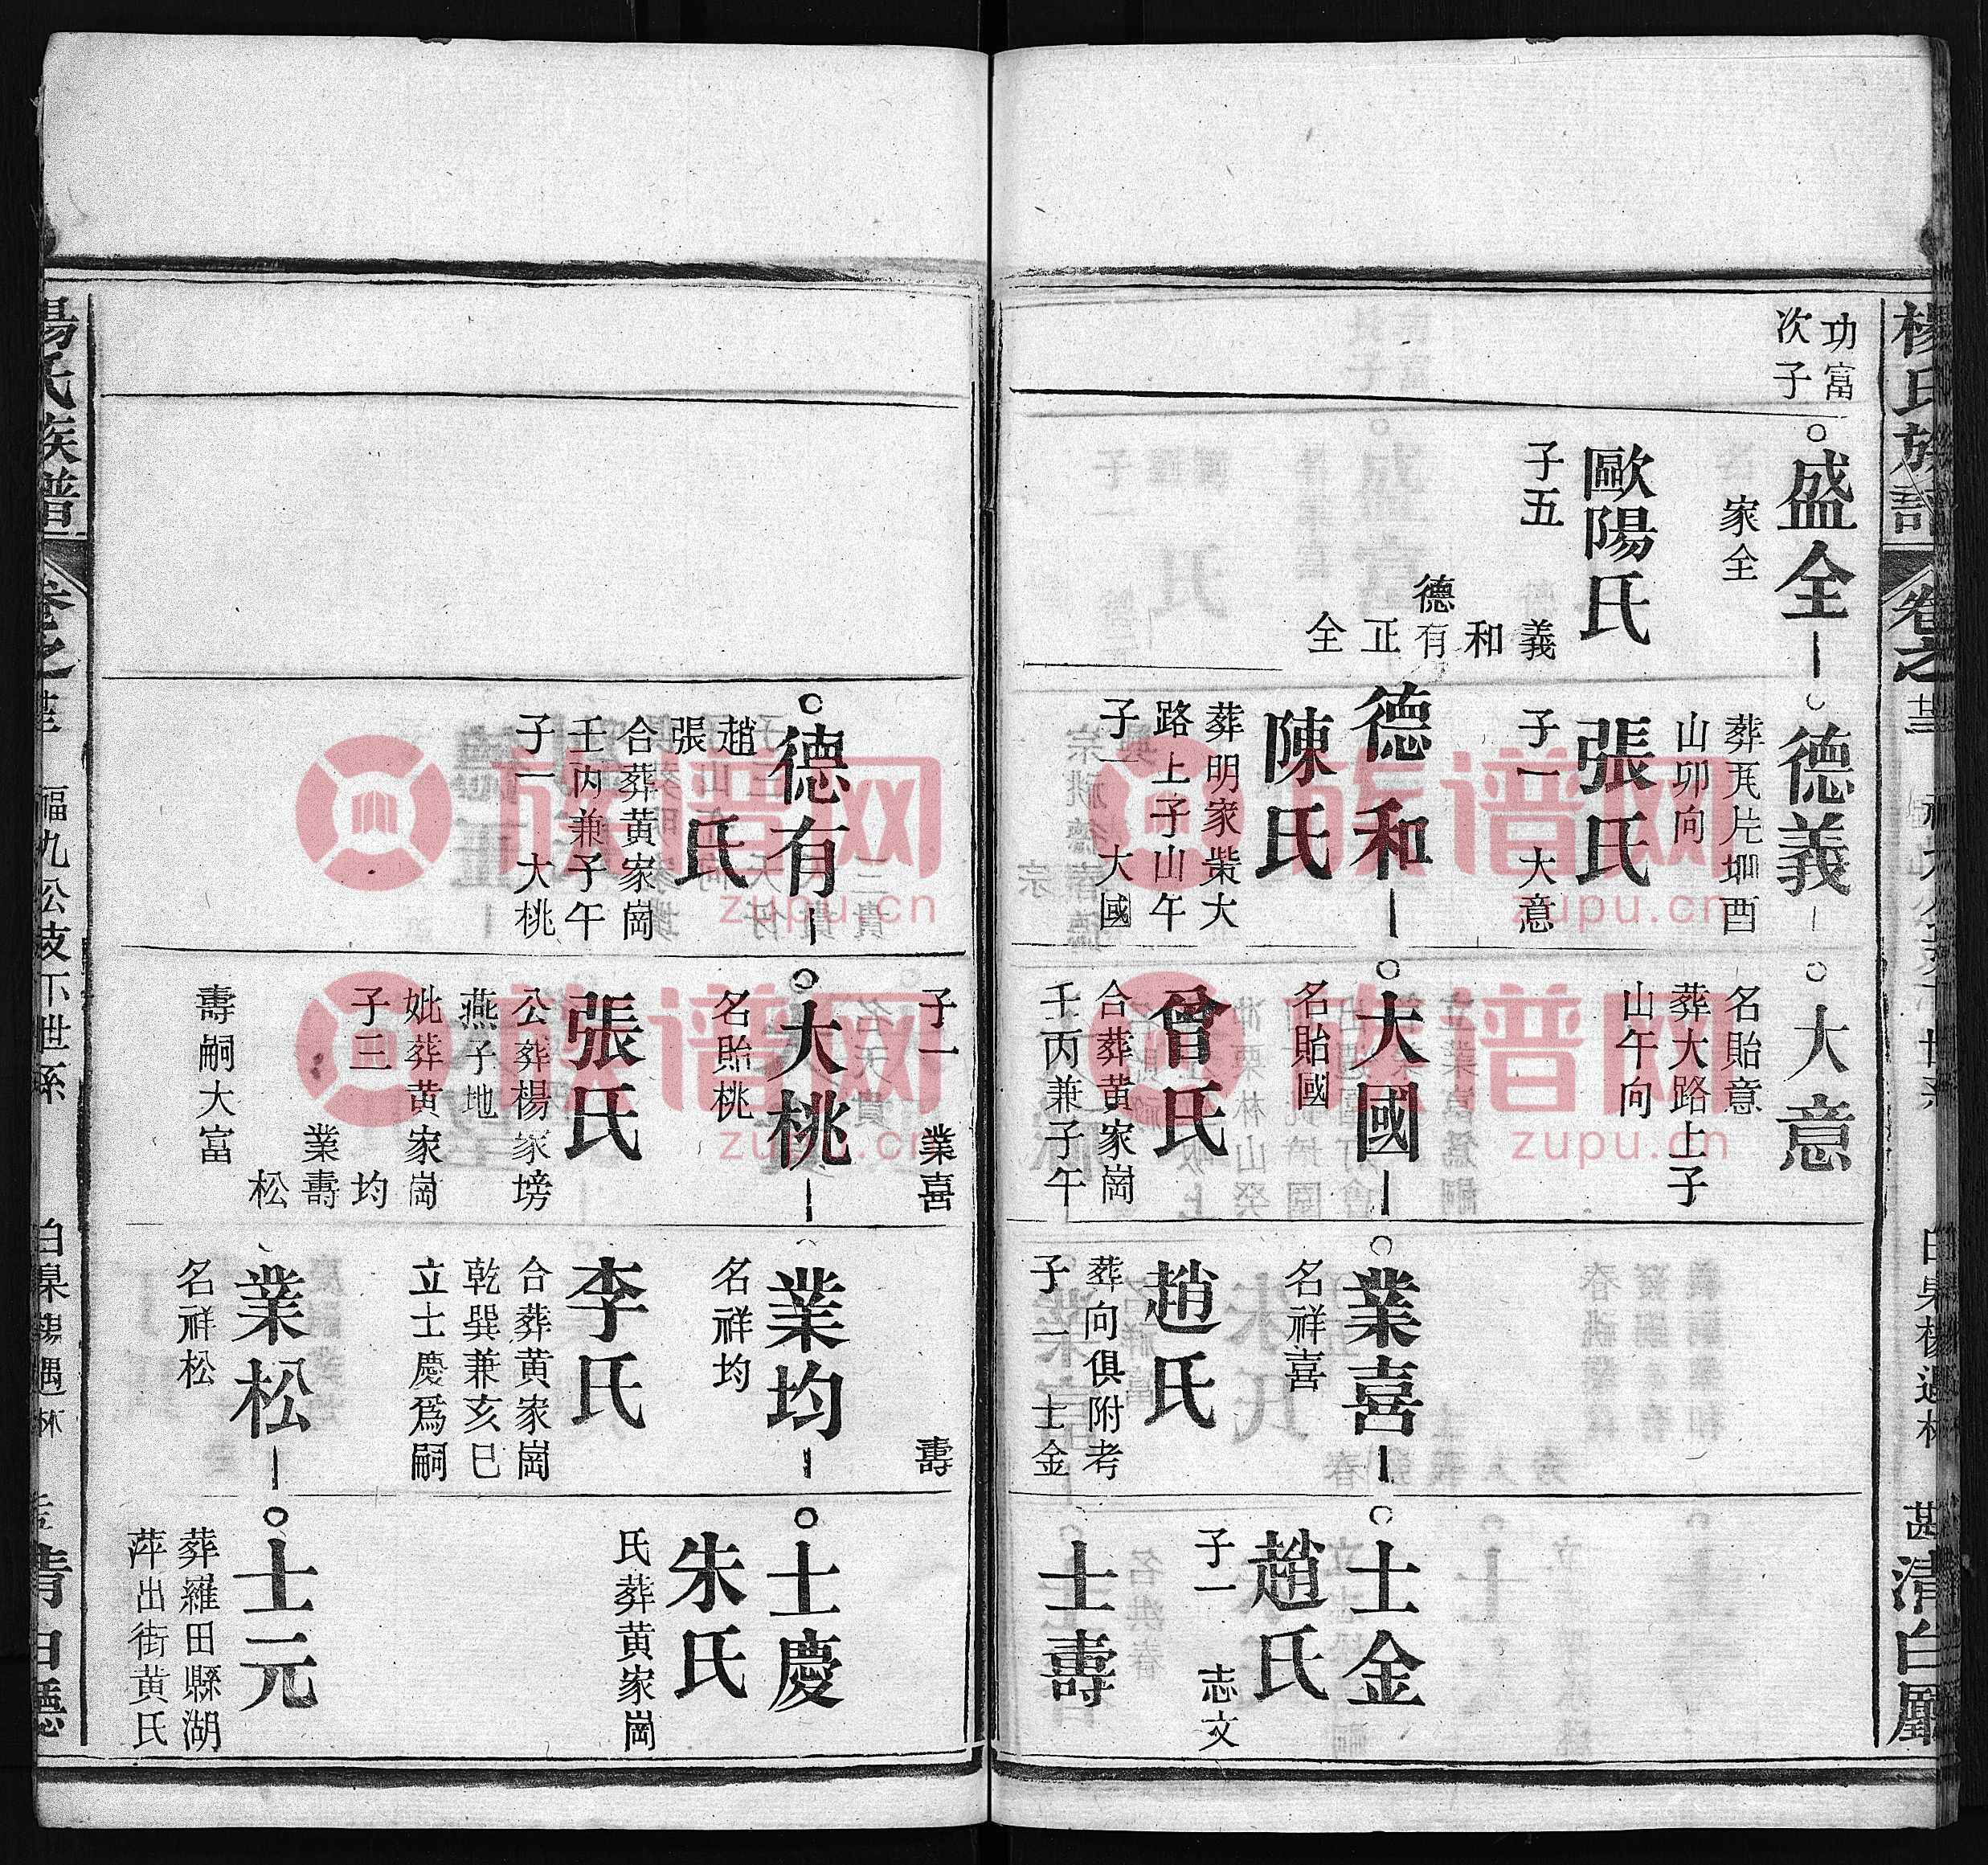 楊氏族譜
卷之
白泉楊遇林
清白
功富
次子
盛全
家全
歐陽氏
子五
德
義
和
有
正
全
德義
葬瓦片㘭酉
山卯向
張氏
子一 大意
德和
陳氏
葬明家柴大
路上子山午
子一 大國
大意
名貽意
葬大路上子
山午向
大國
名貽國
曾氏
合葬黄家崗
壬丙兼子午
業喜
名祥喜
趙氏
葬向俱附考
子一 士金
士金
趙氏
子一 志文
士壽
德有
趙
張
氏
合葬黄家崗
壬丙兼子午
子一 大桃
子一 業喜
大桃
名貽桃
張氏
公葬楊家塝
燕子地
妣葬黄家崗
子三
均
業壽
松
壽嗣大富
壽
業均
名祥均
李氏
合葬黄家崗
乾巽兼亥巳
立士慶爲嗣
業松
名祥松
士慶
朱氏
氏葬黄家崗
士元
葬羅田縣湖
萍出街黄氏
楊氏族譜
卷之
福九公支下世系
白泉楊遇林
清白
族谱网
zupu.cn
族谱网
zupu.cn
族谱网
zupu.cn
族谱网
zupu.cn